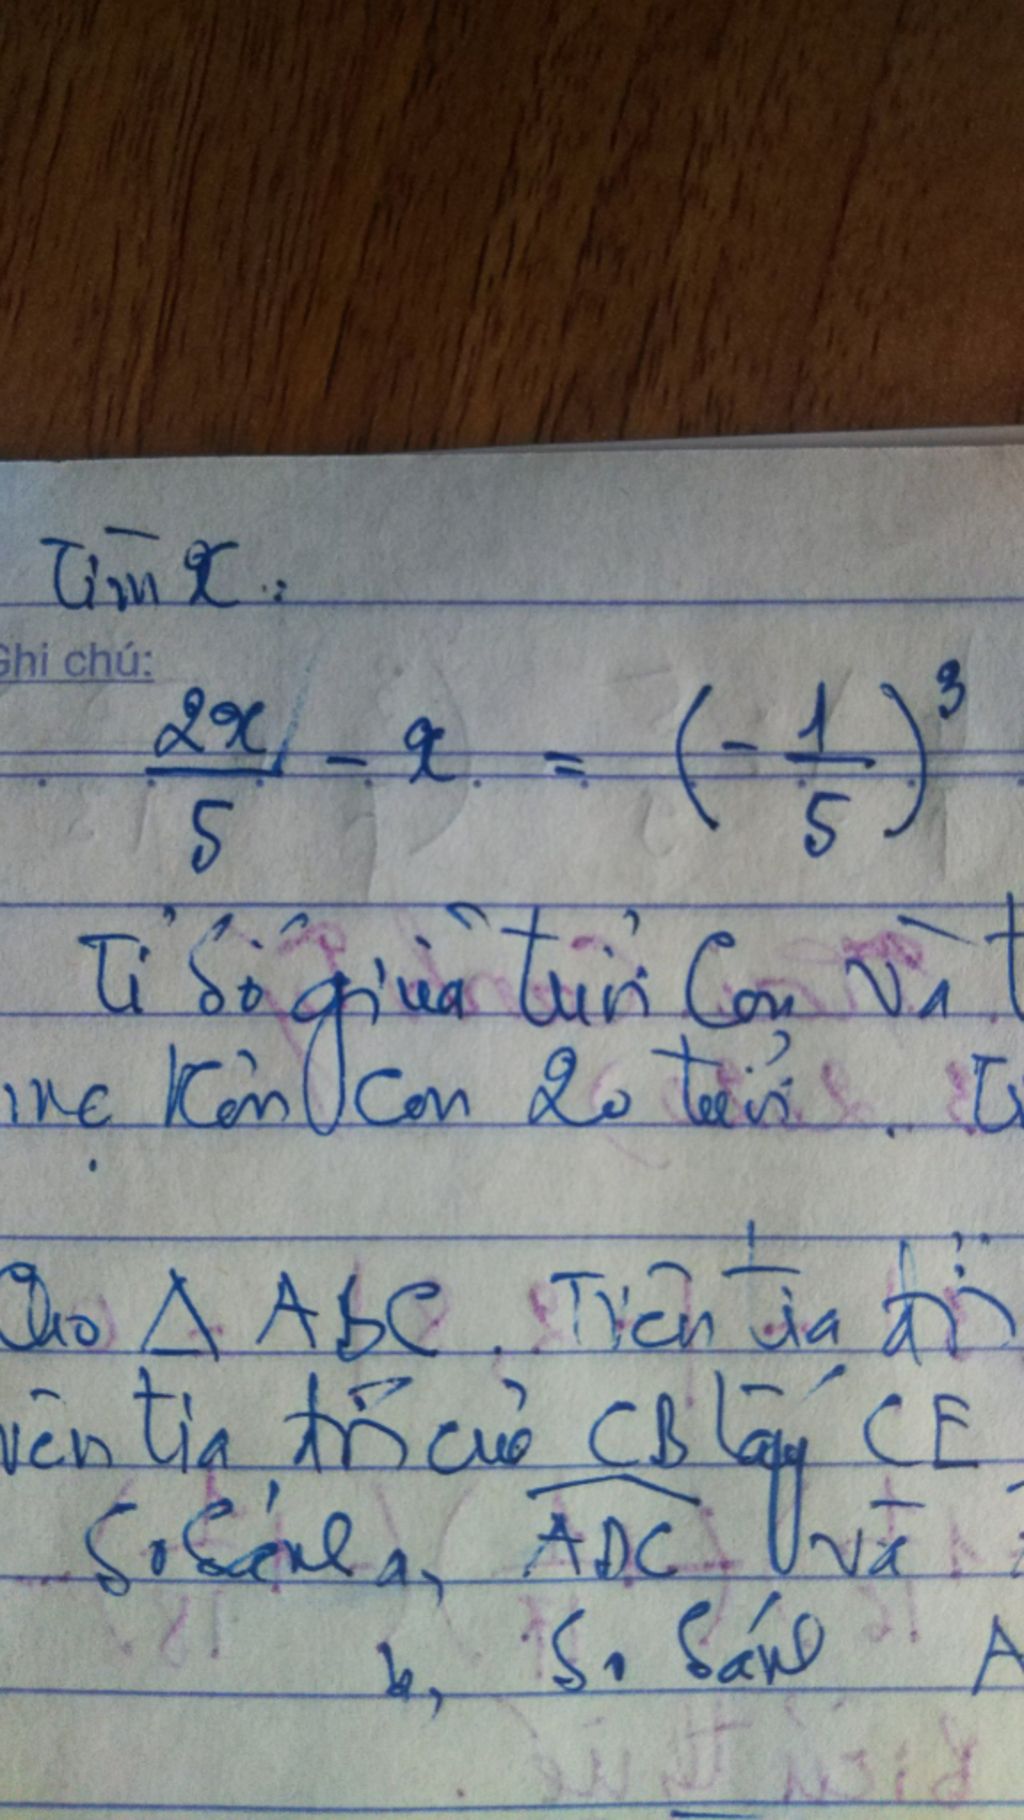 Tìm x :
Ghi chú:
2x/5 - x = (-1/5)^3
Tỉ số giữa tuổi con và t
mẹ hơn con 20 tuổi. T
Cho △ ABC. Trên tia đối
trên tia đối của CB lấy CE
So sánh a, ADC và
b, So sánh A
Biểu thức